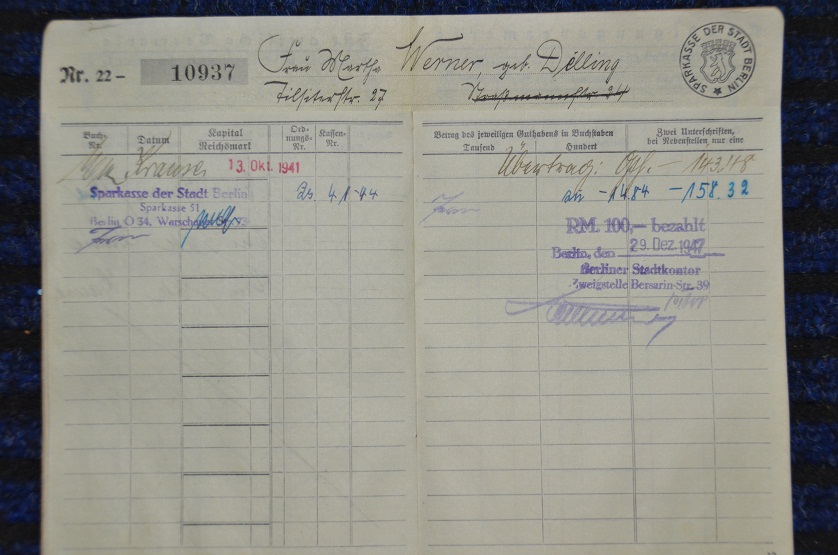 Nr. 22 – 10937 Frau Martha Werner, geb. Delling
Tilsiterstr. 27
SPARKASSE DER STADT BERLIN
Buch-Nr. Datum Kapital Reichsmark Ord-nungs-Nr. Kassen-Nr.
Betrag des jeweiligen Guthabens in Buchstaben
Tausend Hundert
Zwei Unterschriften, bei Nebenstellen nur eine
Krause 13. Okt. 1941
Übertrag: – 143.48
Sparkasse der Stadt Berlin
Sparkasse 51
Berlin O 34,
4.1.44
an – 14.84 – 158.32
RM. 100,– bezahlt
Berlin, den 29. Dez. 1947
Berliner Stadtkontor
Zweigstelle Bersarin-Str. 39